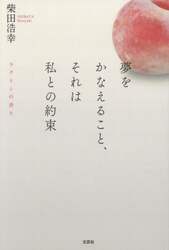 柴田浩幸
SHIBATA
Hiroyuki
夢を
かなえること、
それは
私との約束
ラクトンの香り
文芸社